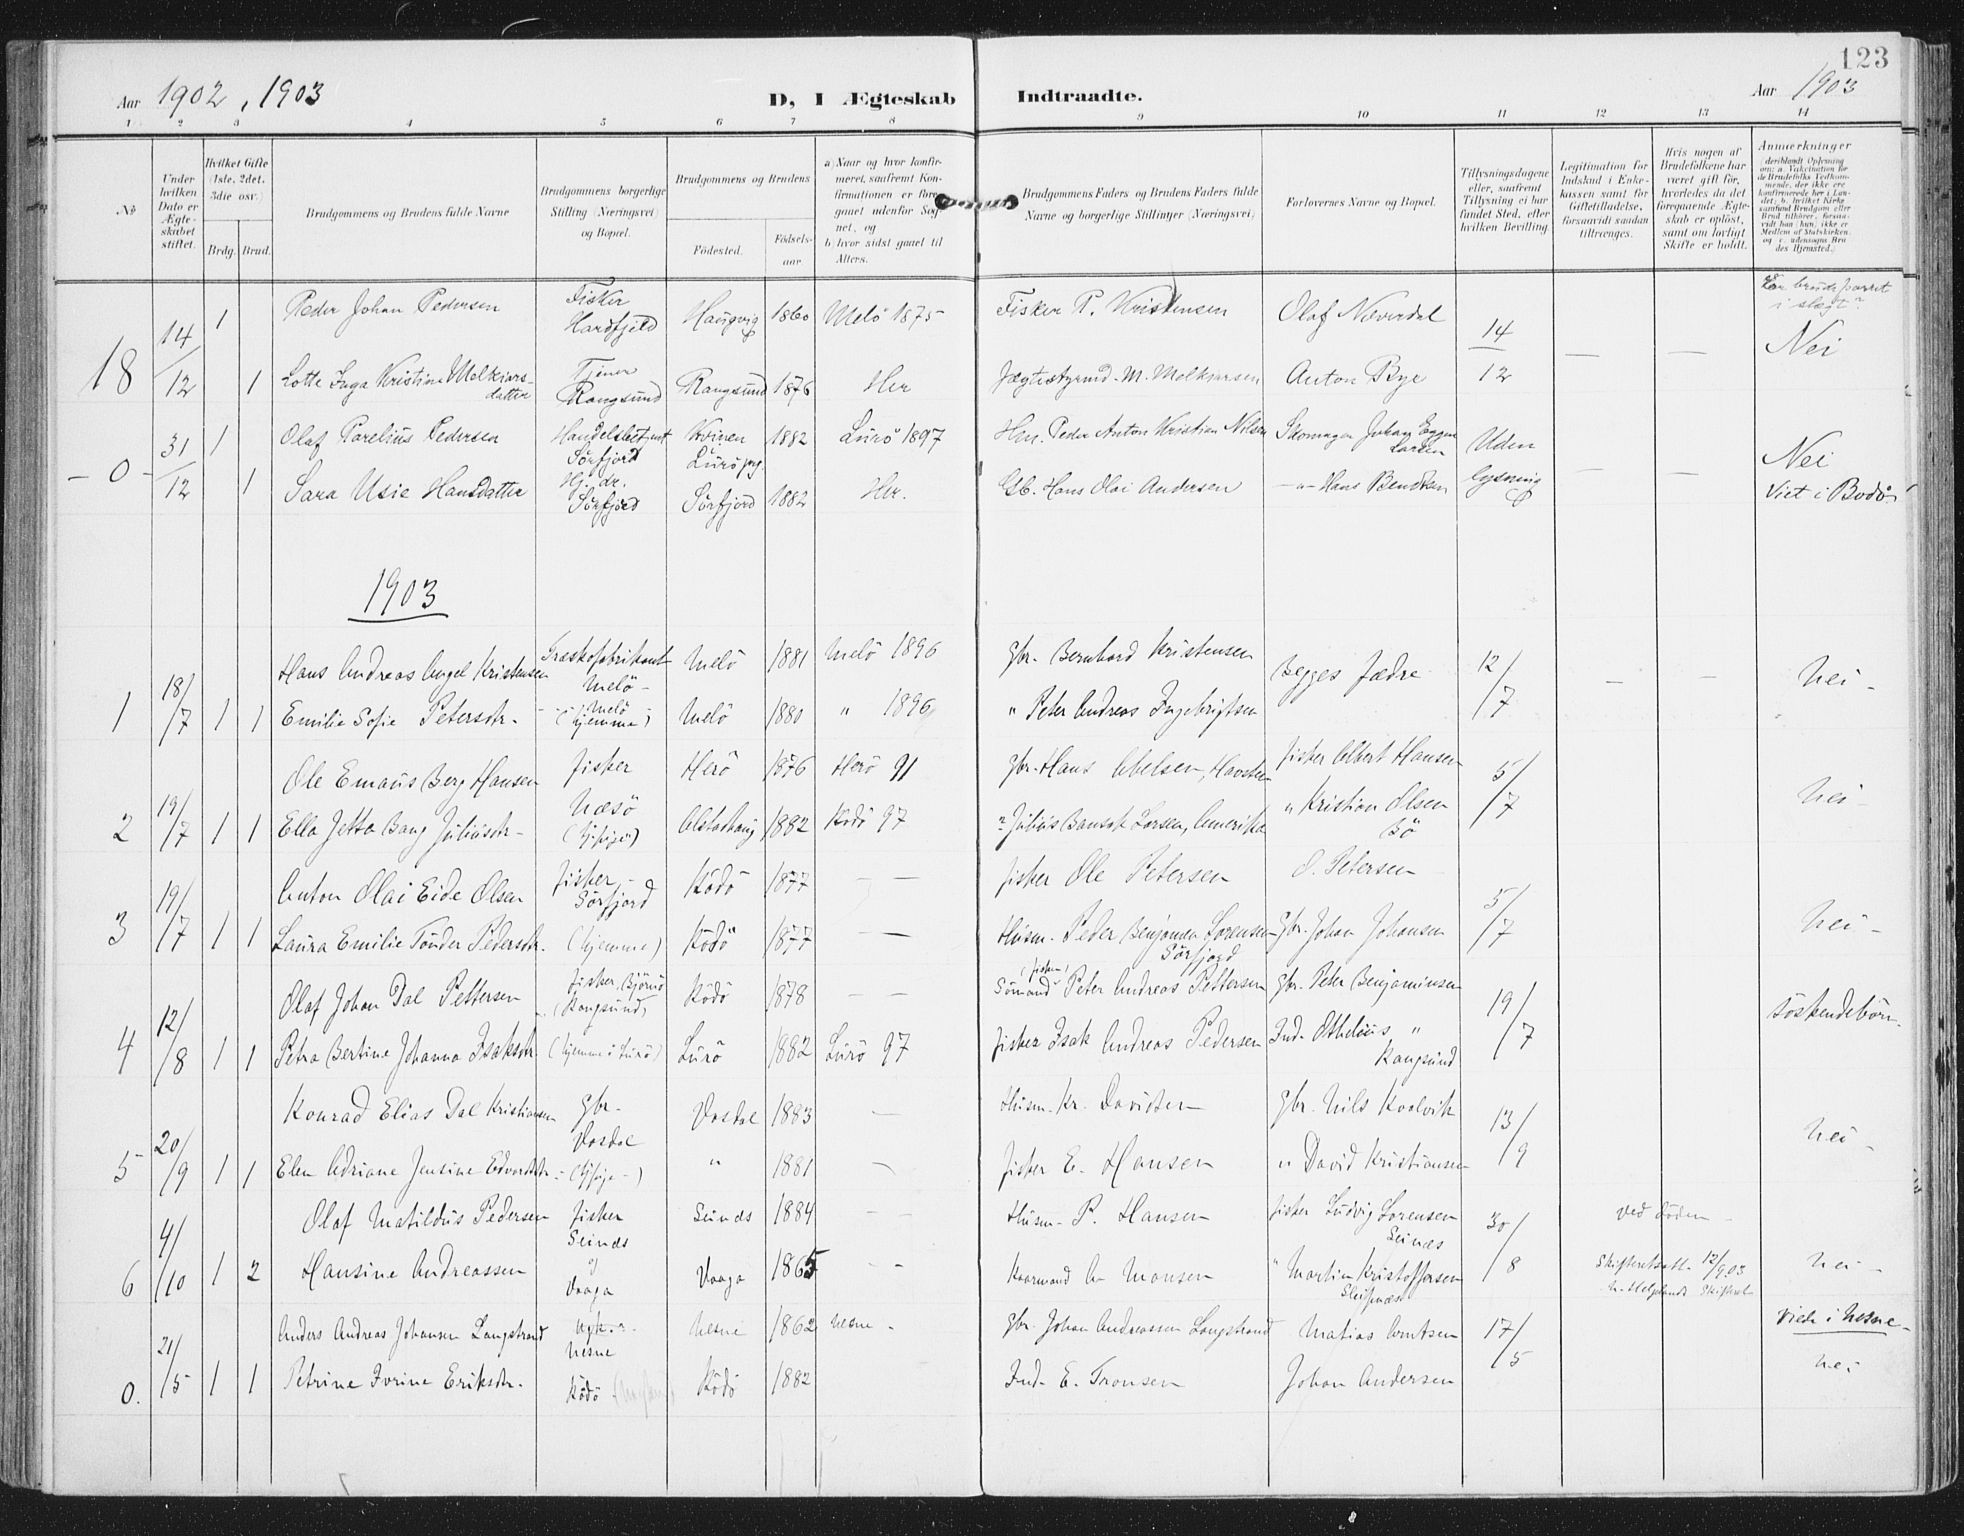 123
Aar 1902, 1903
D, I Ægteskab Indtraadte.
Aar 1903
1 2 3 4 5 6 7 8 9 10 11 12 13 14
No
Under hvilken Dato er Ægteskabet stiftet.
Hvilket Gifte (1ste, 2det, 3die osv.)
Brdg. Brud.
Brudgommens og Brudens fulde Navne
Brudgommens borgerlige Stilling (Næringsvei) og Bopæl.
Brudgommens og Brudens
Fødested. Fødselsaar.
a) Naar og hvor konfirmeret, saafremt Konfirmationen er foregaaet udenfor Sognet, og
b. hvor sidst gaaet til Alters.
Brudgommens Faders og Brudens Faders fulde Navne og borgerlige Stillinger (Næringsvei)
Forlovernes Navne og Bopæl.
Tillysningsdagene eller, saafremt Tillysning ei har fundet Sted, efter hvilken Bevilling.
Legitimation for Indskud i Enkekassen samt for Giftetilladelse, forsaavidt saadan tiltrænges.
Hvis nogen af Brudefolkene har været gift før, hvorledes da det foregaaende Ægteskab er opløst, samt om lovligt Skifte er holdt.
Anmerkninger
Er brudeparret i slægt?
18 14/12 1 Peder Johan Pedersen Fisker Hardfjeld Haugvig 1860 Melö 1875 Fisker P. Kristensen Olaf Næverdal 14 — — Nei
1 Lotte Inga Kristine Melkiorsdatter Tjener Rangsund Rangsund 1876 Her Jægtestyrmd. M. Melkiorsen Anton Bye 12
- 0 - 31/12 1 Olaf Parelius Pedersen Handelsbetjent Sörfjord Kvinen Lurö pg. 1882 Lurö 1897 Hm. Peder Anton Kristian Nilsen Skomager Johan Eggen Larsen Uden — — Nei
1 Sara Usie Hansdatter Hj. dr. Sörfjord Sörfjord 1882 Her. Gb. Hans Olai Andersen -"- Hans Bendksen lysning Viet i Bodö
1903
Hans Andreas Angel Kristensen Træskofabrikant Melö - Melö 1881 Melö 1896 Gbr. Bernhard Kristensen Begges fædre 12/7 — — Nei -
1 18/7 1 1 Emilie Sofie Petersdtr. - Melö (hjemme) Melö 1880 " 1896 " Peter Andreas Ingebrigtsen
Ole Emaus Berg Hansen fisker Herö 1876 Herö 91 Gbr. Hans Abelsen, fisker Albert Hansen 5/7 Nei -
2 19/7 1 1 Ella Jetta Bang Juliusdtr. Næsö Alstadhaug 1882 Rödö 97 " Julius Larsen, Amerika " Kristian Olsen Bö
Anton Olai Eide Olsen fisker, Sörfjord Rödö 1877 — — fisker Ole Petersen O. Petersen 5/7 Nei -
3 19/7 1 1 Laura Emilie Tönder Pedersdtr. (hjemme) Rödö 1877 — — Husm. Peder Benjamin Lorensen Sörfjord Gbr. Johan Johansen
Olaf Johan Dal Pettersen fisker, Rangsund, Rödö 1878 — — Sömand (fisker) Peter Andreas Pettersen Gbr. Peter Benjaminsen 19/7 Söskendebörn.
4 12/8 1 1 Petra Bertine Johanna Isaksdtr. (hjemme i Lurö) Lurö 1882 Lurö 97 fisker Isak Andreas Pedersen Ind. Othelius " Rangsund
Konrad Elias Dal Kristiansen Gbr. Vasdal Vasdal 1883 — Husm. Kr. Davidsen Gbr. Nils Kvalvik 13/9 Nei -
5 20/9 1 1 Elen Adriane Jensine Edvardsdtr. " 1881 — fisker E. Hansen " David Kristiansen
Olaf Matildus Pedersen fisker Selnes Selnes 1884 — — Husm. P. Hansen fisker Ludvig Lorensen Selnæs 30/8 Ved döden -
6 4/10 1 2 Hansine Andreassen Vaaga Vaaga 1865 - - A Monsen " Martin Kristoffersen 12/9 03 Nei -
Anders Andreas Johansen Langstrand Nesne Nesne 1862 Nesne - Gbr. Johan Andreassen Langstrand Matias Arntsen 17/5 Viede i Nesne -
0. 21/5 1 1 Petrine Ivrine Eriksdtr. Rödö Rödö 1882 Ind. E. Tronsen Johan Andersen Nei